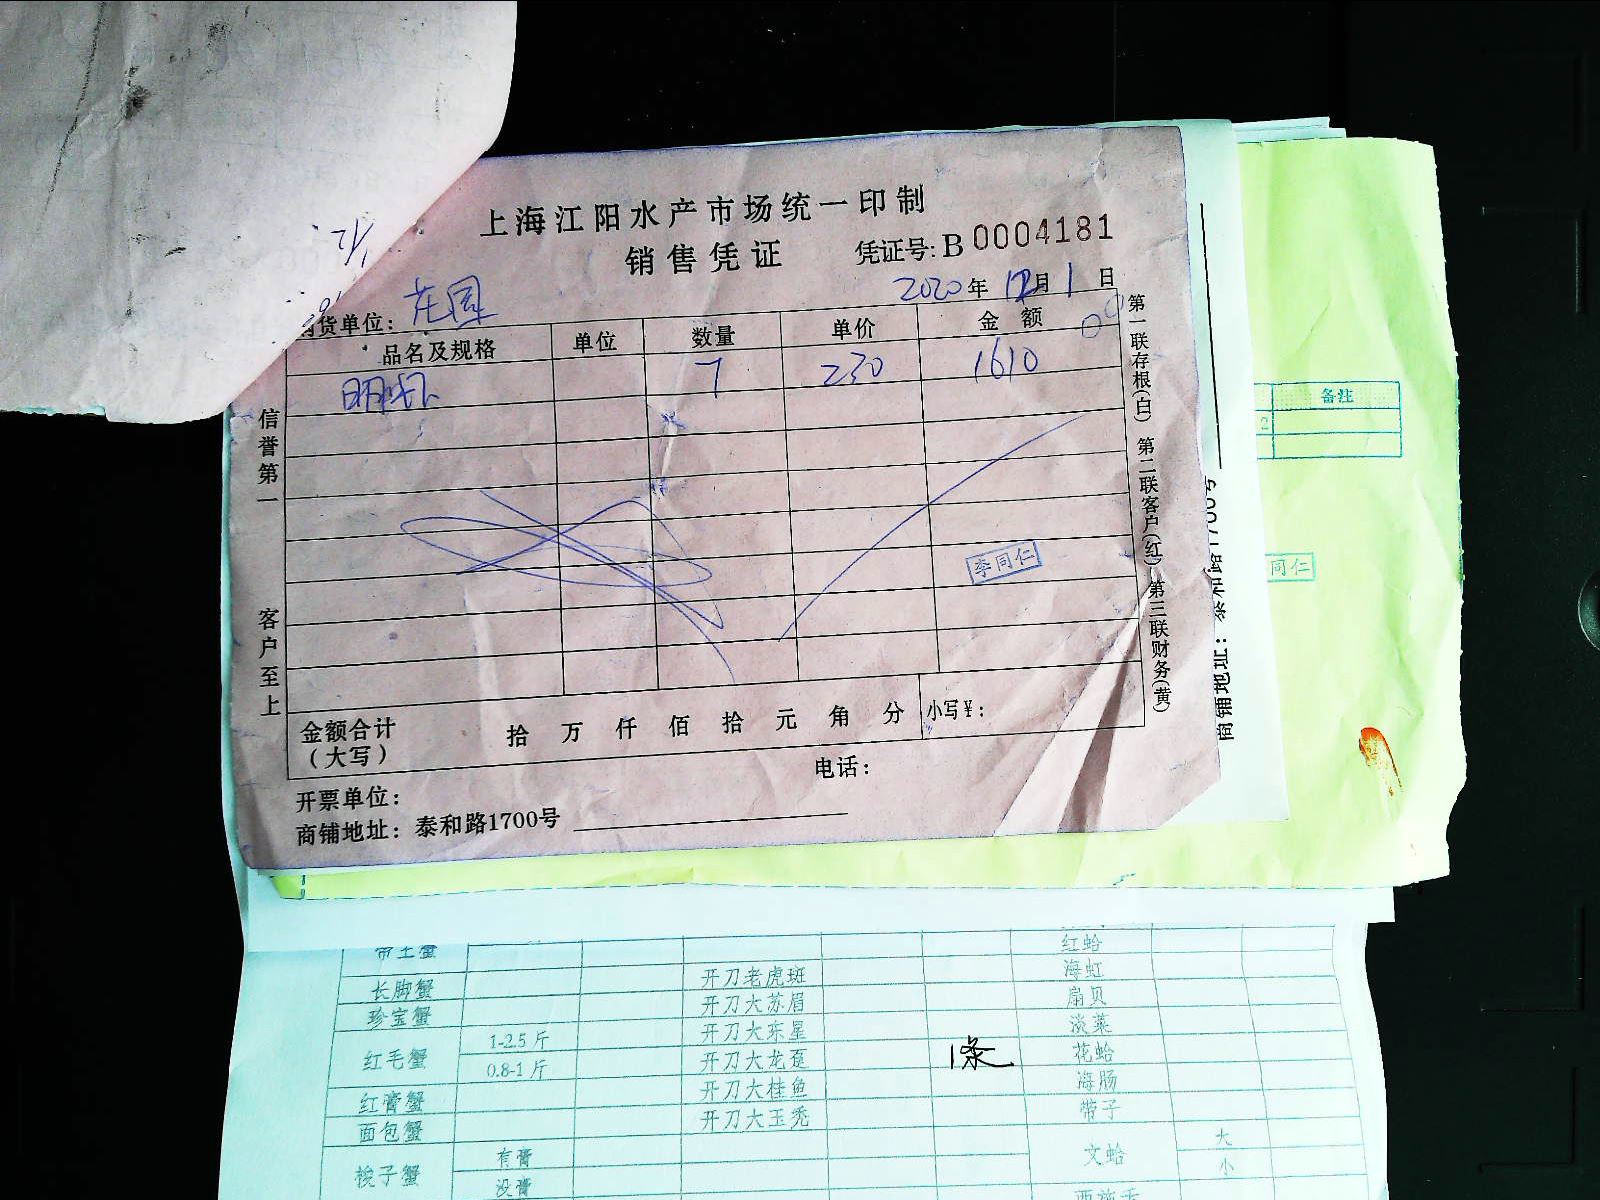 上海江阳水产市场统一印制
销售凭证 凭证号: B 0004181
2020年 12月 1 日
货单位: 花园
品名及规格 单位 数量 单价 金额
7 230 1610
信誉第一 客户至上
第一联存根(白) 第二联客户(红) 第三联财务(黄)
李同仁
金额合计
(大写)
拾 万 仟 佰 拾 元 角 分 小写¥:
电话:
开票单位:
商铺地址: 泰和路1700号
备注
2
同仁
商铺地址: 泰和路1700号
帝王蟹 红蛤
长脚蟹 开刀老虎斑 海虹
珍宝蟹 开刀大苏眉 扇贝
红毛蟹 1-2.5斤 开刀大东星 淡菜
0.8-1斤 开刀大龙趸 1条 花蛤
红膏蟹 开刀大桂鱼 海肠
面包蟹 开刀大玉秃 带子
梭子蟹 有膏 文蛤 大
没膏 小